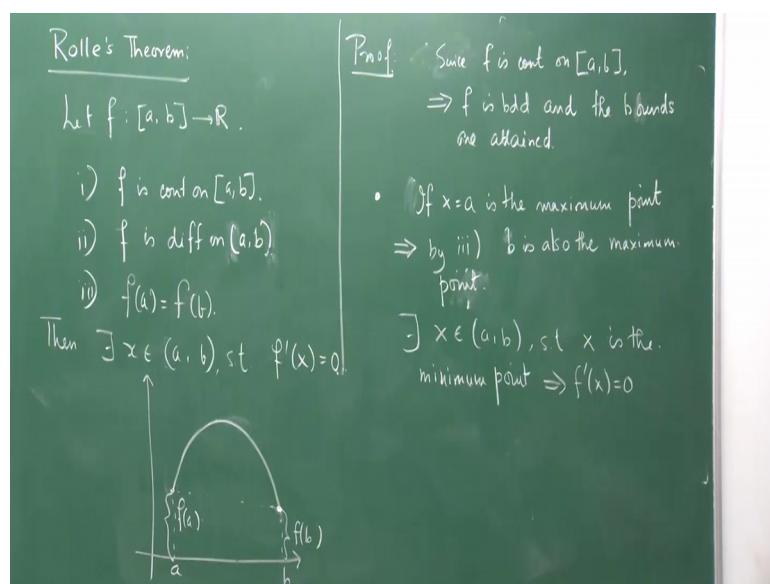 Rolle's Theorem:
Let f : [a, b] → R.
i) f is cont on [a, b].
ii) f is diff on (a, b)
iii) f(a) = f(b).
Then ∃ x ∈ (a, b), st f'(x) = 0.
f(a)
f(b)
a
b
Proof: Since f is cont on [a, b],
⇒ f is bdd and the bounds
are attained.
• If x = a is the maximum point
⇒ by iii) b is also the maximum
point.
∃ x ∈ (a, b), s.t x is the
minimum point ⇒ f'(x) = 0